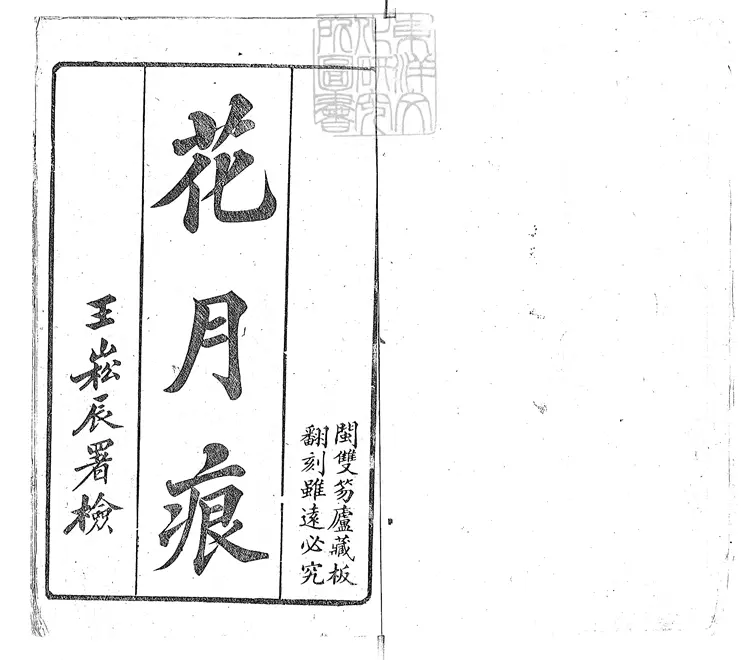 東洋文
化研究
所圖書
閩雙笏廬藏板
翻刻雖遠必究
花月痕
王崧辰署檢